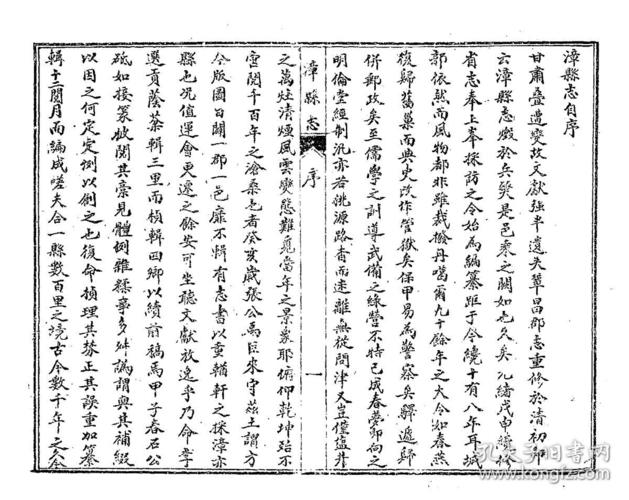 漳縣志自序
甘肅疊遭變故文獻強半遺失鞏昌郡志重修於清初即
云漳縣志燬於兵燹是邑乘之闕如也久矣光緒戊申續修
省志奉上峯採訪之令始為編纂距于今纔十有八年耳城
郭依然而風物都非雖裁撥丹噶爾九十餘年之大令如春燕
復歸舊巢而典史改作管獄矣保甲易為警察矣驛遞歸
併郵政矣至儒學之訓導武備之綠營不特已成春夢即向之
明倫堂經制汛亦若桃源路杳而迷離無從問津又豈僅鹽井
漳縣志
序
一
之萬灶清煙風雲變態難覓當年之景象耶俯仰乾坤殆不
啻閱千百年之滄桑也者癸亥歲張公為臣來守茲土謂方
今版圖日闢一郡一邑靡不輯有志書以重輶軒之採漳亦
縣也況值運會更遷之餘安可坐聽文獻放逸乎乃命孝
選貢蔭棻輯三里而楨輯四鄉以續前稿焉甲子春石公
砥如接篆披閱其稾見體例雜糅事多舛譌謂與其補綴
以因之何定定例以創之也復命楨理其棼正其誤重加纂
輯十二閱月而編成嗟夫合一縣數百里之境古今數千年之久
孔夫子旧书网